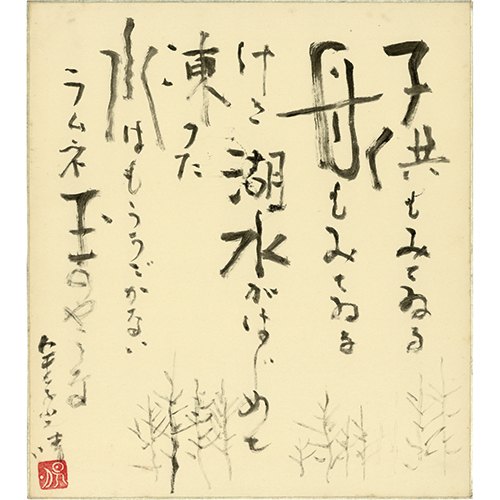 子供もみてゐる
母もみてゐる
けさ湖水がはじめて
凍つた
水はもううごかない
ラムネ玉のやうな